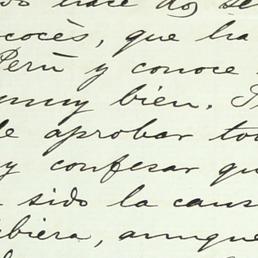 hace dos
cocès, que ha
Perú y conoce
muy bien.
de aprobar
y confesar qu
sido la caus
ubiera, aunque